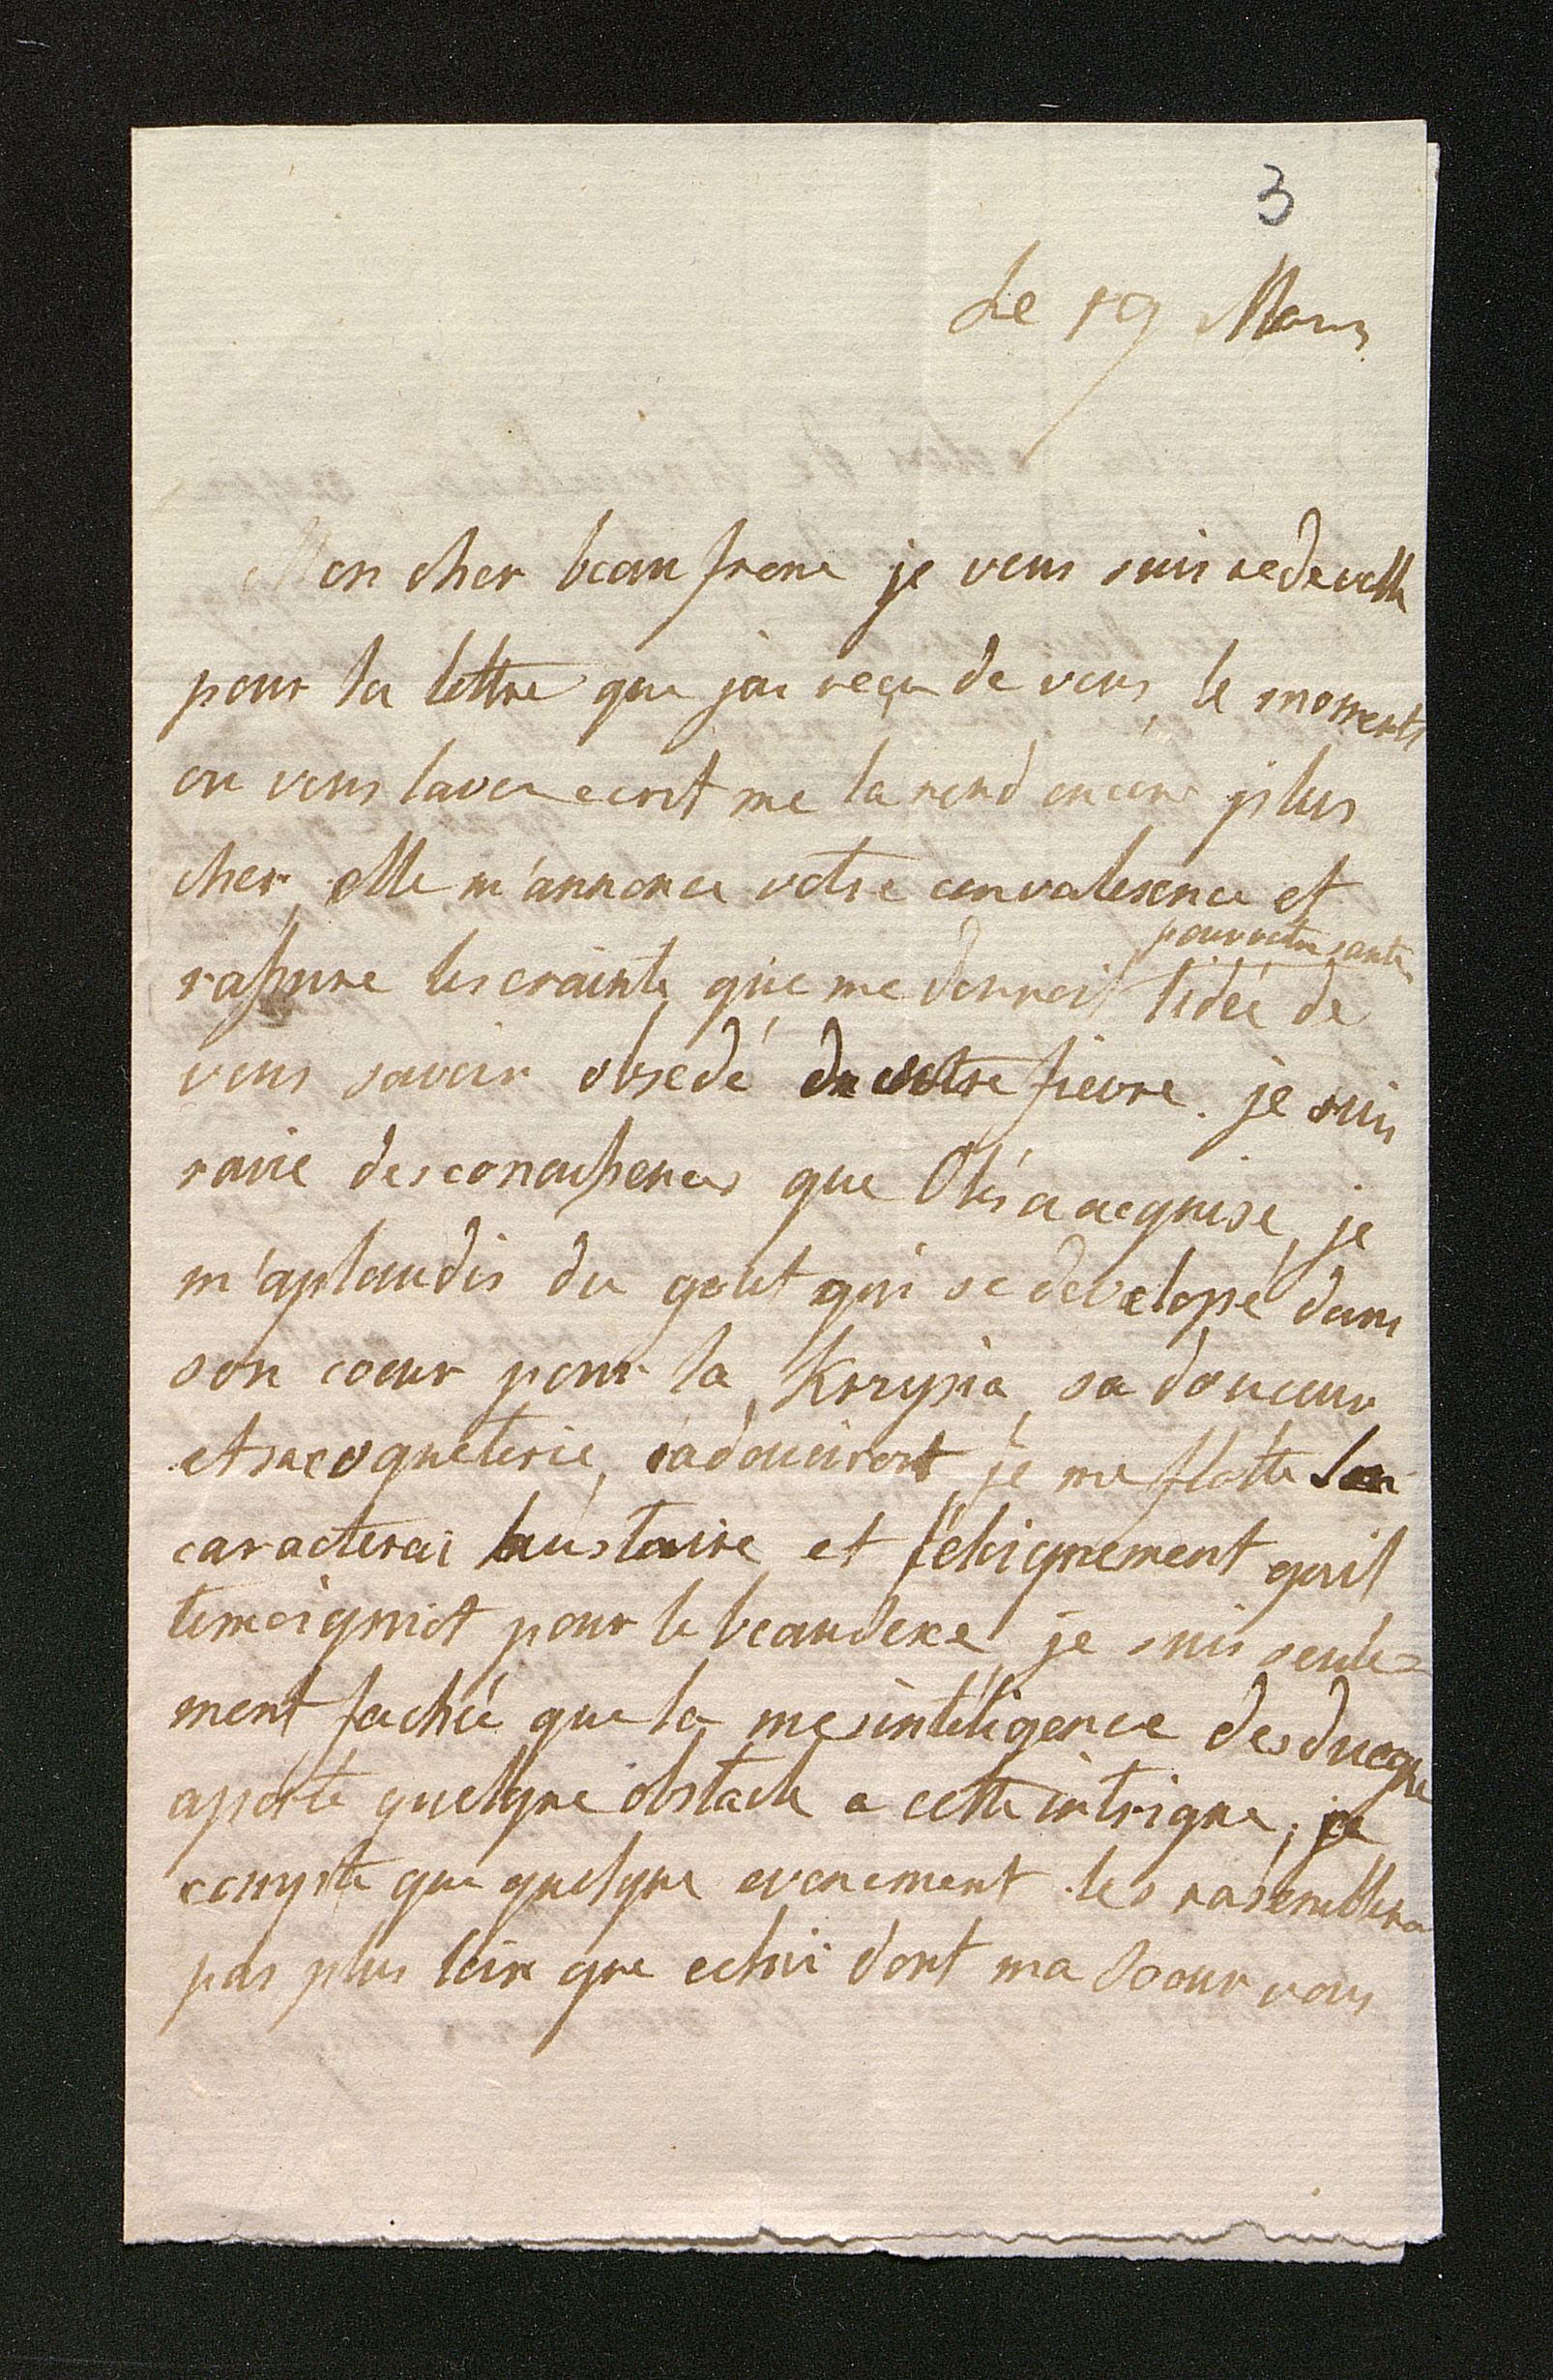 3
Le 19 Mars
Mon cher beau frere je vous suis redevable
pour la lettre que jai reçu de vous, le moment
ou vous lavez ecrit me la rend encore plus
cher, elle m'annonce votre convalesence et
pour votre santé
rassure les crainte que me donnoit l'idée de
vous savoir obsedé de votre fievre. je suis
ravie des conaissences que Olés a acquise, je
m'aplaudis du gout qui se develope dans
son coeur pour la Krzysia, sa douceur
et sa coqueterie, radouciront je me flatte son
caracterai austaire et l'eloignement quil
temoigniot pour le beau sexe, je suis seule=
ment fachée que la mesinteligence des
aporte quelque obstacle a cette intrigue, je
compte que quelque evenement les rasemblera
pas plus loin que celui dont ma Soeur vous